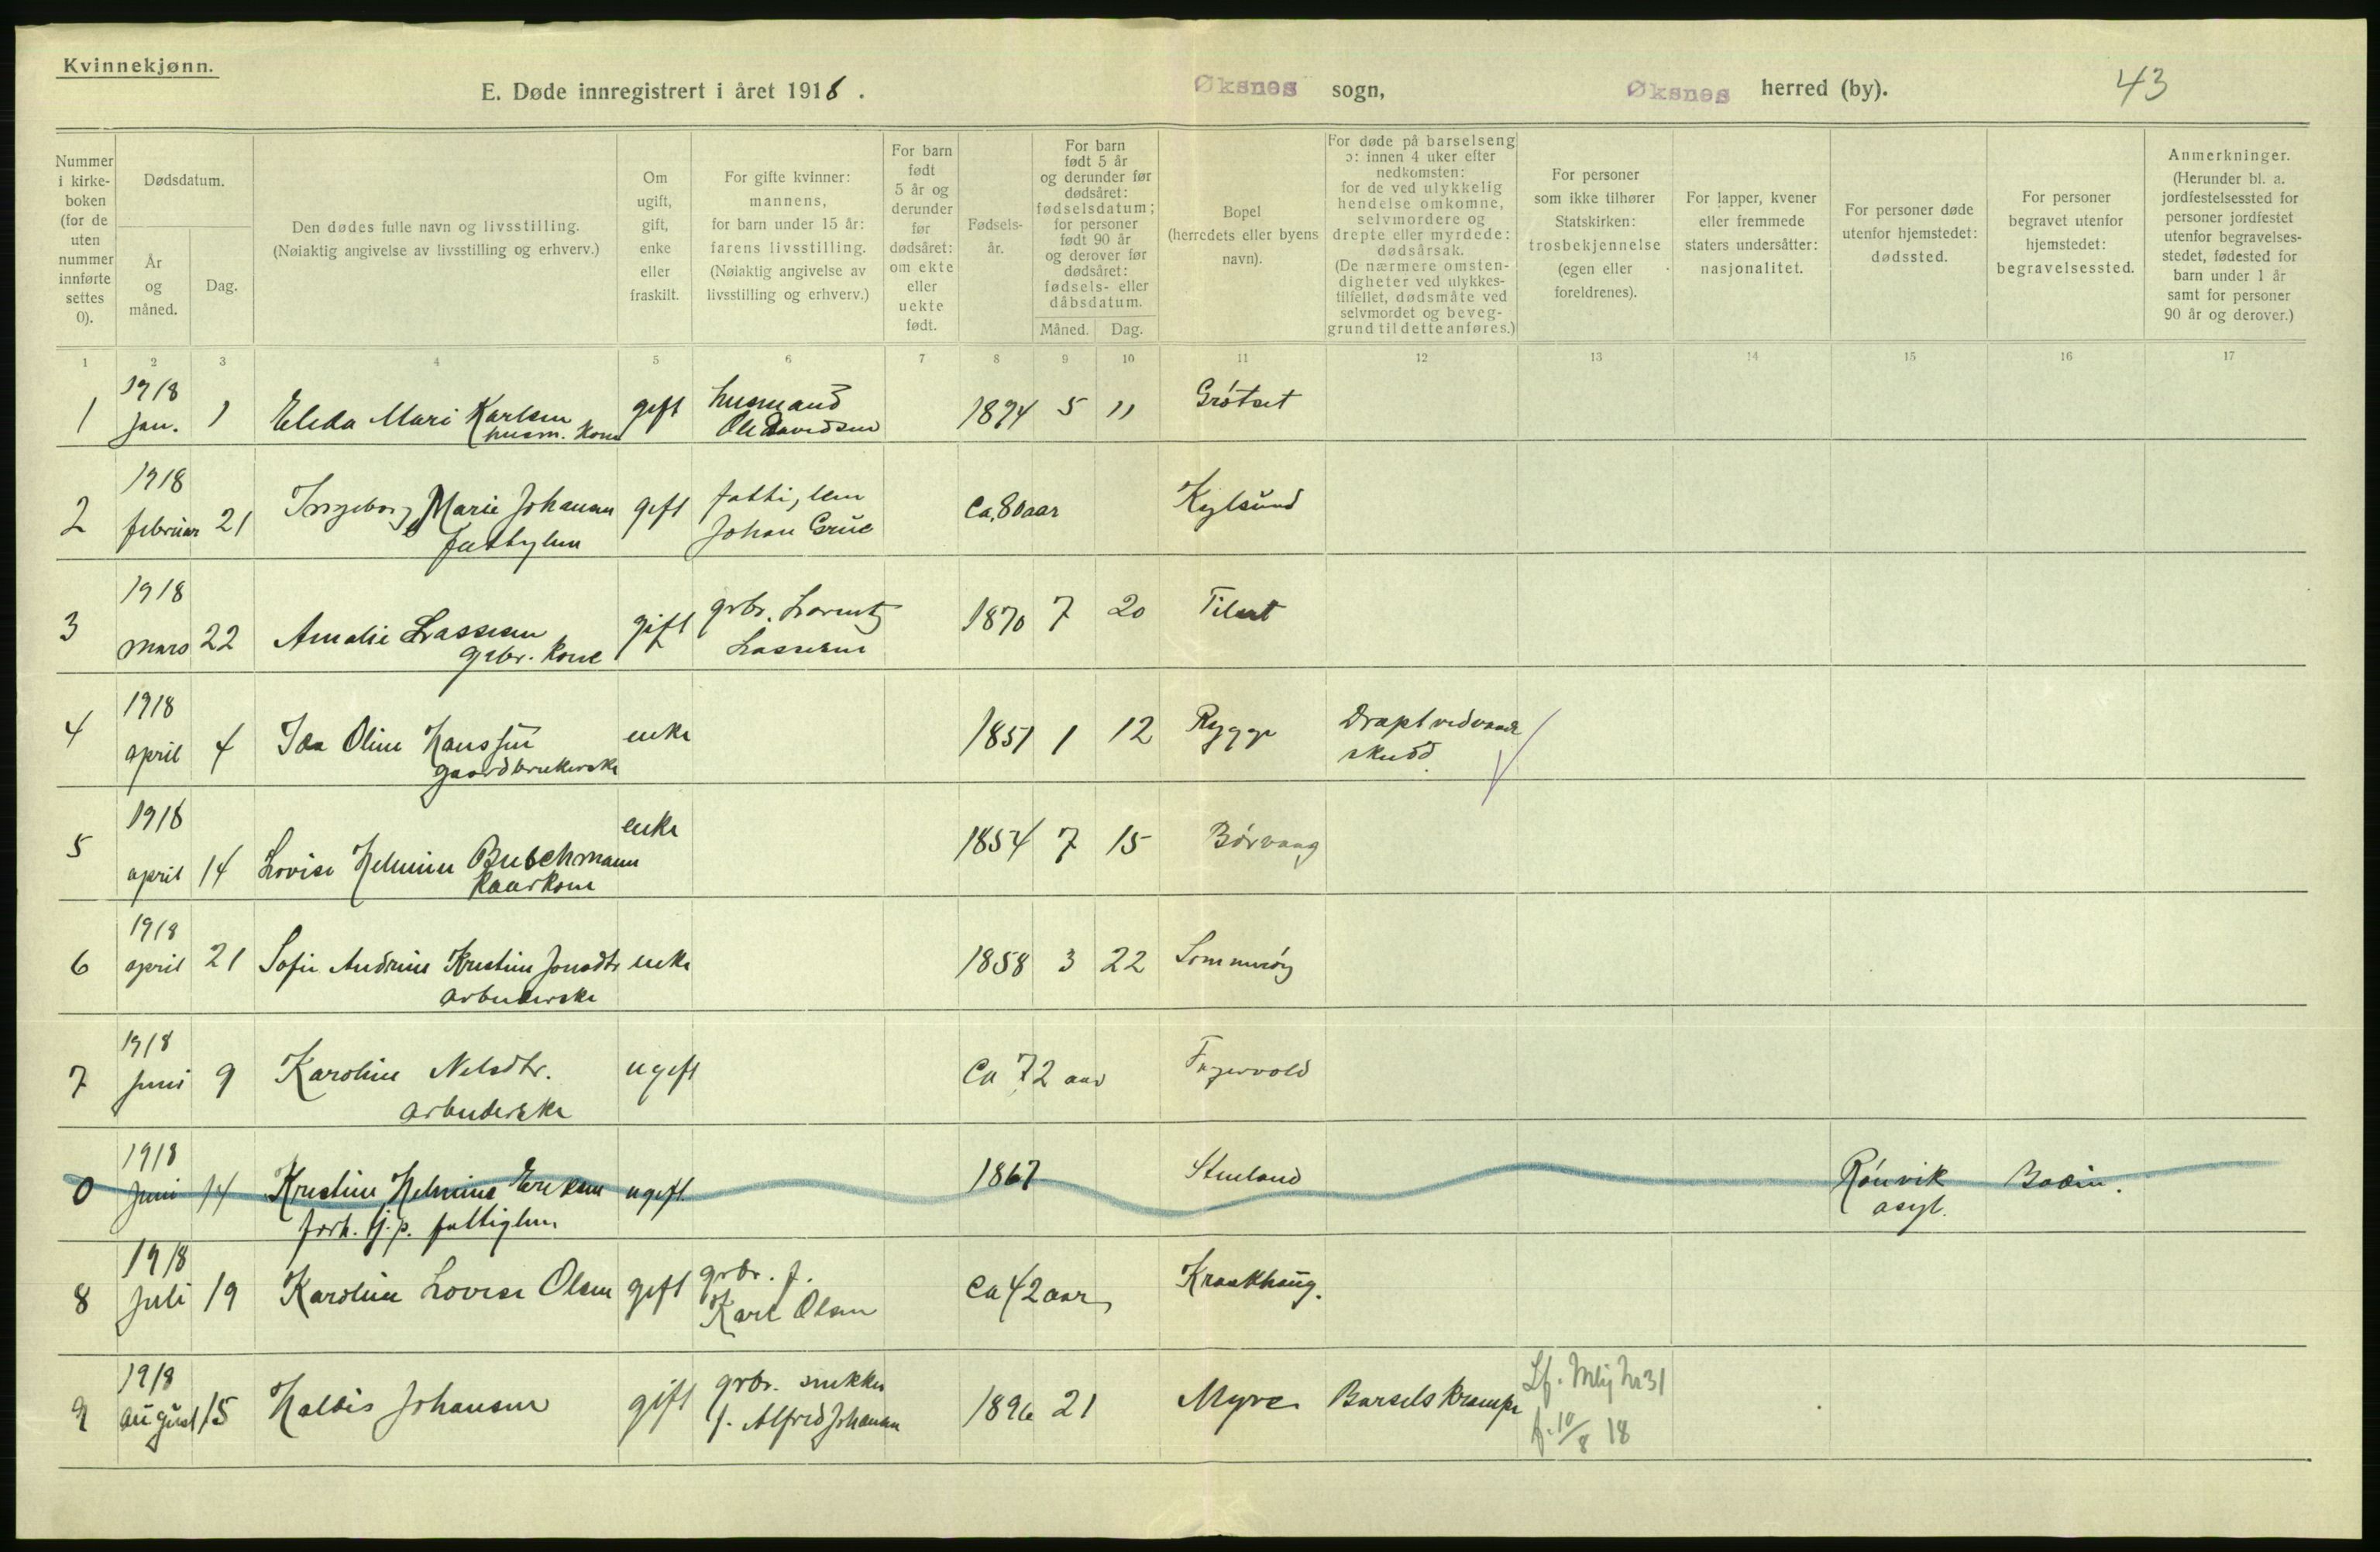 Kvinnekjønn.
E. Døde innregistrert i året 1918.
Øksnes sogn,
Øksnes herred (by).
43
Nummer
i kirke-
boken
(for de
uten
nummer
innførte
settes
0).
Dødsdatum.
År
og
måned.
Dag.
Den dødes fulle navn og livsstilling.
(Nøiaktig angivelse av livsstilling og erhverv.)
Om
ugift,
gift,
enke
eller
fraskilt.
For gifte kvinner:
mannens,
for barn under 15 år:
farens livsstilling.
(Nøiaktig angivelse av
livsstilling og erhverv.)
For barn
født
5 år og
derunder
før
dødsåret:
om ekte
eller
uekte
født.
Fødsels-
år.
For barn
født 5 år
og derunder før
dødsåret:
fødselsdatum;
for personer
født 90 år
og derover før
dødsåret:
fødsels- eller
dåbsdatum.
Måned.
Dag.
Bopel
(herredets eller byens
navn).
For døde på barselseng
ɔ: innen 4 uker efter
nedkomsten:
for de ved ulykkelig
hendelse omkomne,
selvmordere og
drepte eller myrdede:
dødsårsak.
(De nærmere omsten-
digheter ved ulykkes-
tilfellet, dødsmåte ved
selvmordet og beveg-
grund til dette anføres.)
For personer
som ikke tilhører
Statskirken:
trosbekjennelse
(egen eller
foreldrenes).
For lapper, kvener
eller fremmede
staters undersåtter:
nasjonalitet.
For personer døde
utenfor hjemstedet:
dødssted.
For personer
begravet utenfor
hjemstedet:
begravelsessted.
Anmerkninger.
(Herunder bl. a.
jordfestelsessted for
personer jordfestet
utenfor begravelses-
stedet, fødested for
barn under 1 år
samt for personer
90 år og derover.)
1 2 3 4 5 6 7 8 9 10 11 12 13 14 15 16 17
1918 husmand Grøtset
1 Jan. 1 Elida Mari Karlsen gift Ole Davidsen 1874 5 11
husm. kone
1918 Kylsund
2 februar 21 Ingeborg Marie Johansen gift fattiglem ca. 80 aar
fattiglem Johan Grue
1918 grbr. Lorentz Tilset
3 mars 22 Amalie Lassesen gift Lassesen 1870 7 20
grbr. kone
1918
4 april 4 Ida Oline Hanssen enke 1851 1 12 Rygge Dræpt ved vaade
gaardbrukerske skudd.
1918 enke
5 april 14 Lovise Helmine Buschmann 1854 7 15 Børvaag
kaarkone
1918
6 april 21 Sofie Andrine Kristine Jonsdtr enke 1858 3 22 Sommerøy
arbeiderske
1918
7 juni 9 Karoline Nelsdtr. ugift Ca 72 aar Fagervold
arbeiderske
1918
0 juni 14 Kristine Helmine Eriksen ugift 1867 Steinland Rønvik Bodin.
forh. tj.p. fattiglem asyl.
1918 grbr. f.
8 juli 19 Karoline Lovise Olsen gift Karl Olsen Ca 42 aar Kraakhaug.
1918 grbr. snekker Lf. Mlj Nr 31
9 august 15 Haldis Johansen gift f. Alfred Johansen 1896 21 Myre Barselskrampe
f. 10/8 18